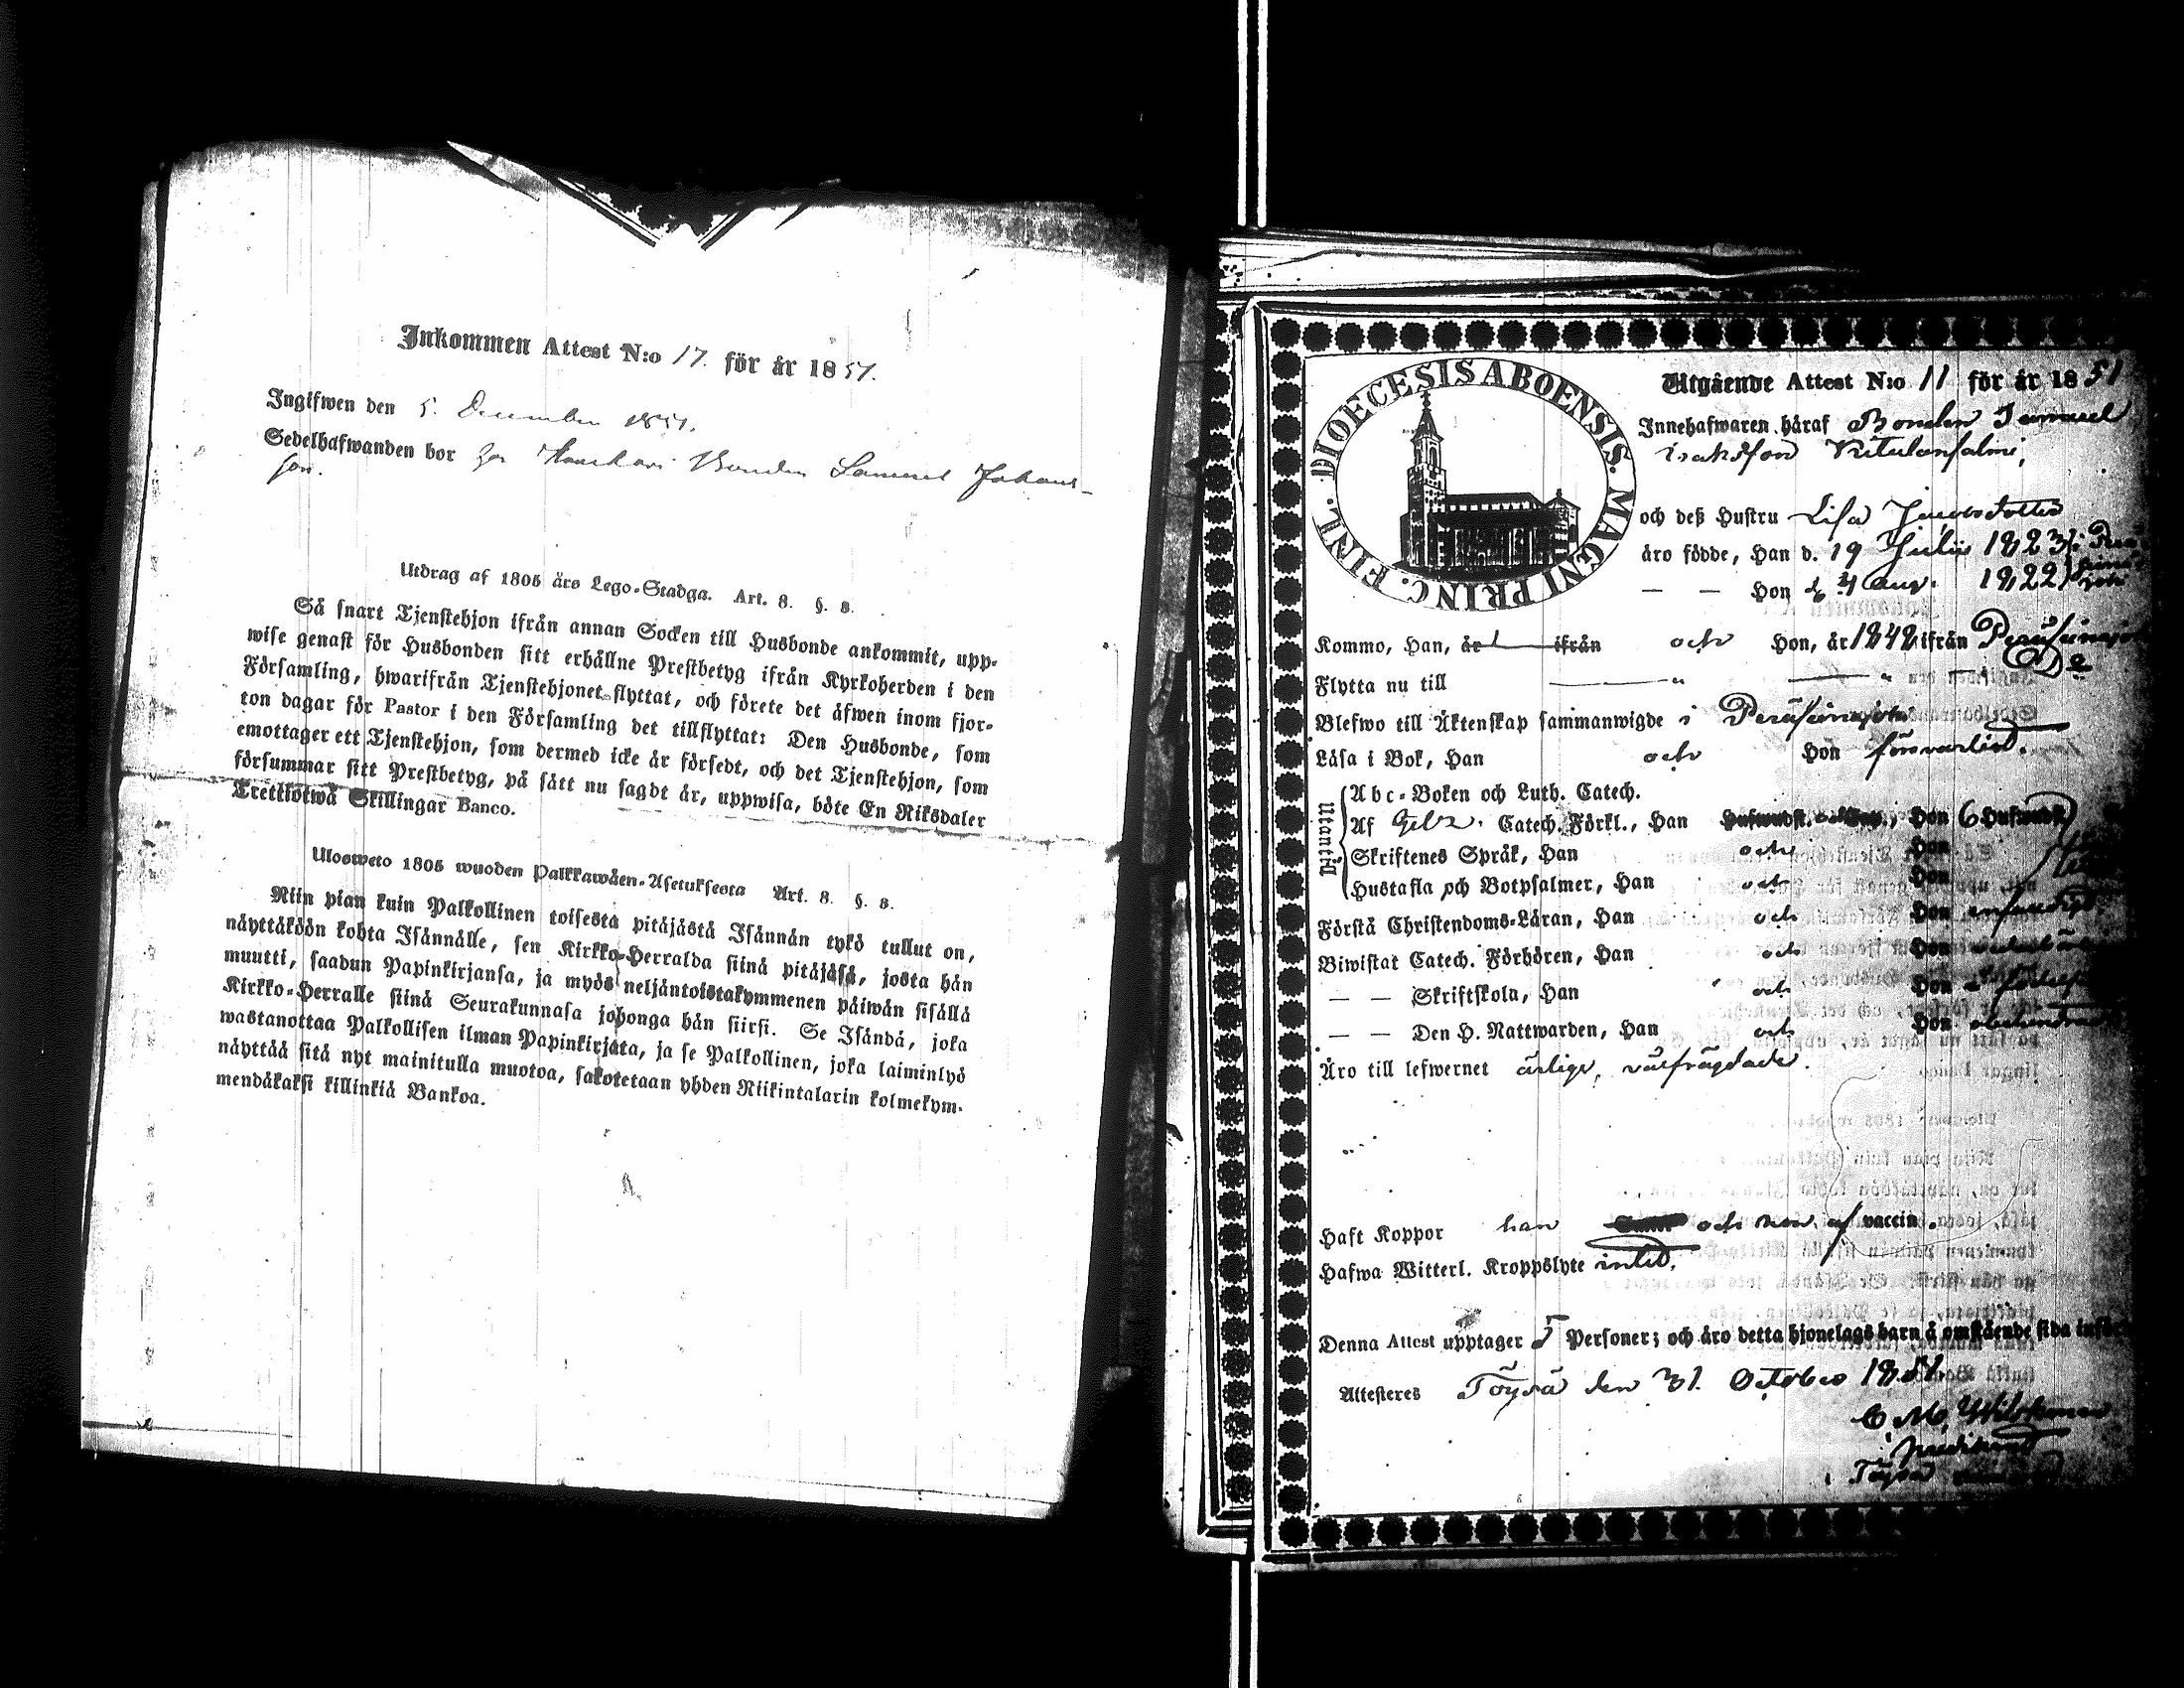 Inkommen Attest N:o 17. för år 1851.
Ingifwen den 5. December 1851.
Sedelhafwanden bor Bonden Samuel Johans-
son.
Utdrag af 1805 års Lego-Stadga. Art. 8. §. 8.
Så snart Tjenstehjon ifrån annan Socken till Husbonde ankommit, upp-
wise genast för Husbonden sitt erhållne Prestbetyg ifrån Kyrkoherden i den
Församling, hwarifrån Tjenstehjonet flyttat, och förete det äfwen inom fjor-
ton dagar för Pastor i den Församling det tillflyttat: Den Husbonde, som
emottager ett Tjenstehjon, som dermed icke är försedt, och det Tjenstehjon, som
försummar sitt Prestbetyg, på sätt nu sagdt är, uppwisa, böte En Riksdaler
Trettiotwå Skillingar Banco.
Ulosweto 1805 wuoden Palkkawäen-Asetuksesta Art. 8. §. 8.
Niin pian kuin Palkollinen toisesta pitäjästä Isännän tykö tullut on,
näyttäköön kohta Isännälle, sen Kirkko-Herralda siinä pitäjäsä, josta hän
muutti, saadun Papinkirjansa, ja myös neljäntoistakymmenen päiwän sisällä
Kirkko-Herralle siinä Seurakunnasa johonga hän siirsi. Se Isändä, joka
wastanottaa Palkollisen ilman Papinkirjata, ja se Palkollinen, joka laiminlyö
näyttää sitä nyt mainitulla muotoa, sakotetaan yhden Riikintalarin kolmekym-
mendäkaksi killinkiä Bankoa.
DIOECESIS ABOENSIS. MAGNI PRINC. FINL.
Utgående Attest N:o 11 för år 1851
Innehafwaren häraf Bonden Samuel
Isaksson
och deß Hustru Lisa Jacobsdotter
äro födde, Han d. 19 Julii 1823
— — Hon d. 4 Aug. 1822
Kommo, Han, år ifrån och Hon, år 1848 ifrån
Flytta nu till
Blefwo till Äktenskap sammanwigde i
Läsa i Bok, Han och Hon försvarligt.
Utantill
Abc-Boken och Luth. Catech.
Af Catech. Förkl., Han Hon 6 Hufwudst.
Skriftenes Språk, Han och Hon
Hustafla och Botpsalmer, Han och Hon
Förstå Christendoms-Läran, Han och Hon
Biwistat Catech. Förhören, Han och Hon
— — Skriftskola, Han och Hon
— — Den H. Nattwarden, Han och Hon
Äro till lefwernet ärlige, välfrägdade.
Haft Koppor han och hon af vaccin.
Hafwa Witterl. Kroppslyte intet.
Denna Attest upptager 5 Personer; och äro detta hjonelags barn å omstående sida
Attesteres Töysä den 31. October 1851.
C. M.
i Töysä